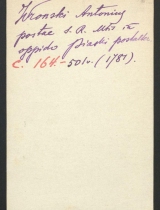 Wronski Antonius
postae S. R. Mtis in
oppido Piaski
c. 164.-501v. (1781).